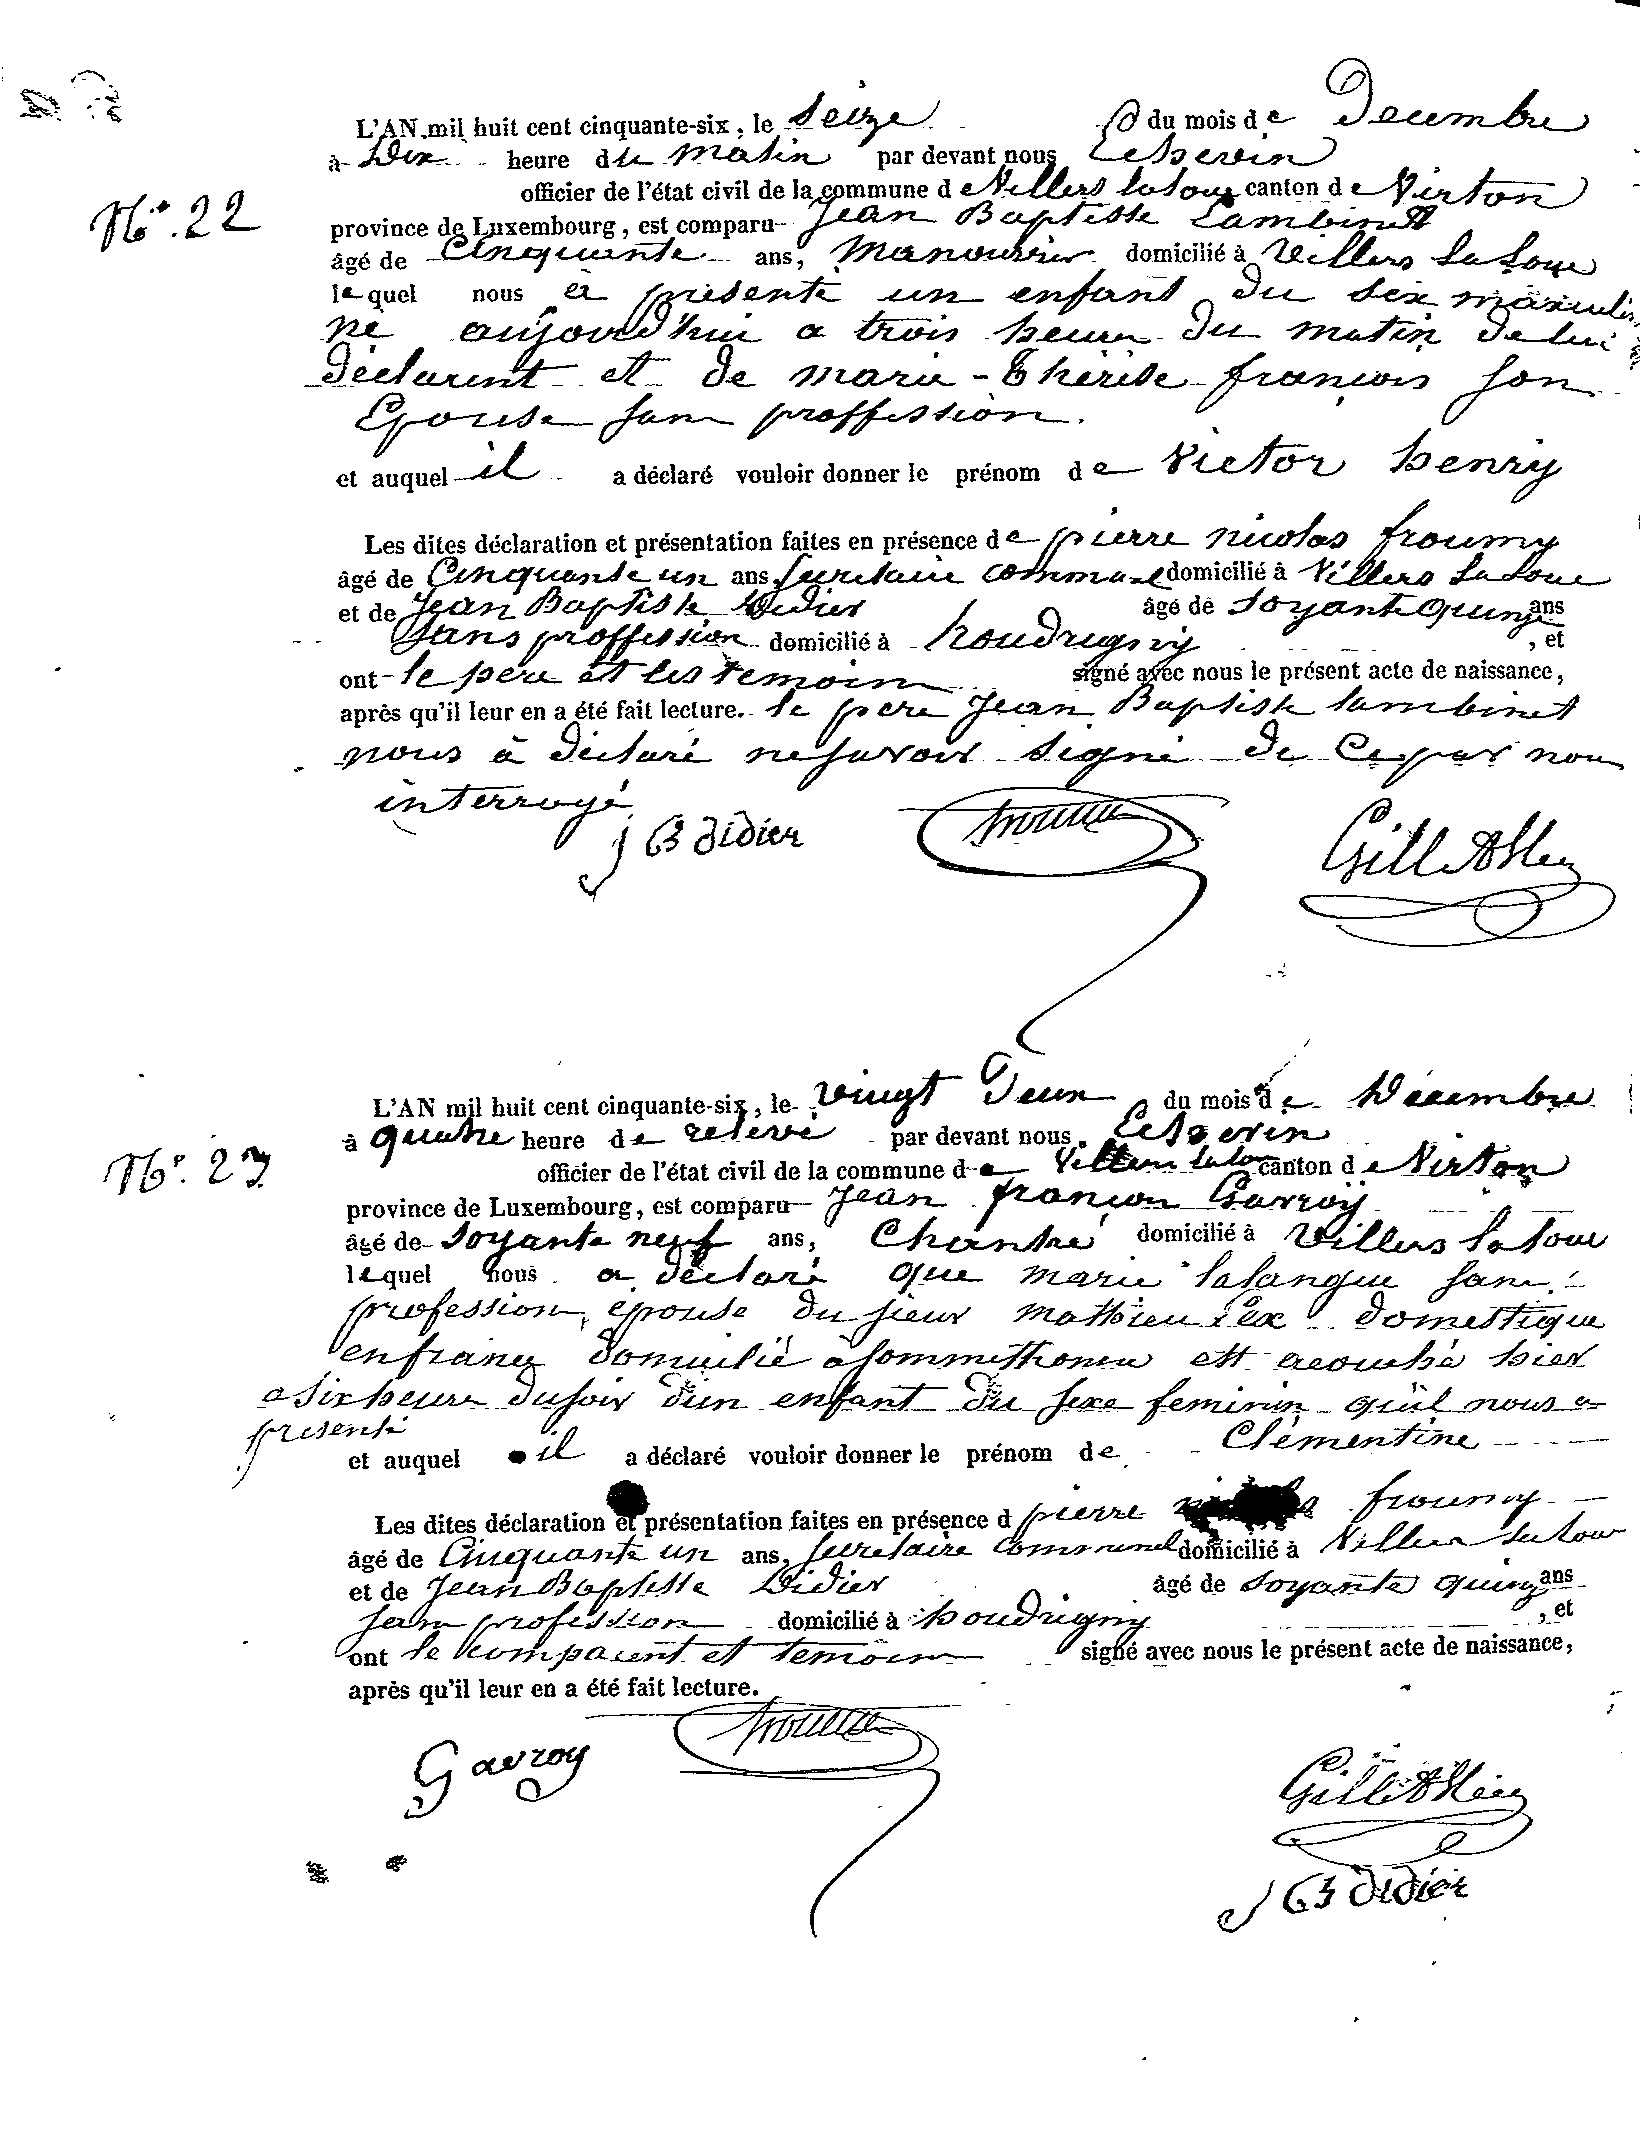 L'AN mil huit cent cinquante-six, le Seize du mois de Decembre
à Dix heure du matin par devant nous Echevin
Nº. 22
officier de l'état civil de la commune de Villers laloue canton de Virton
province de Luxembourg, est comparu Jean Baptiste Lambinet
âgé de Cinquante ans, Manouvrier domicilié à Villers Laloue
lequel nous à présenté un enfant du sex masculin
né aujourd'hui a trois heure du matin de lui
déclarent et de marie-Thérèse françois son
Epouse san proffession.
et auquel il a déclaré vouloir donner le prénom de Victor henry
Les dites déclaration et présentation faites en présence de pierre nicolas froumy
âgé de Cinquante un ans Secretaire communal domicilié à Villers Laloue
et de Jean Baptiste Didier âgé de Soyante quinze ans
Sans proffession domicilié à houdrigny , et
ont le père et les temoin signé avec nous le présent acte de naissance,
après qu'il leur en a été fait lecture. le père Jean Baptiste lambinet
nous à déclaré ne savoir signé de ce par nou
interrogé
J B didier froumy
L'AN mil huit cent cinquante-six, le vingt Deux du mois de Décembre
à quatre heure de relevé par devant nous Echevin
Nº. 23
officier de l'état civil de la commune de Villers laloue canton de Virton
province de Luxembourg, est comparu Jean françois Gavroÿ
âgé de Soyante neuf ans, Chantré domicilié à Villers laloue
lequel nous a déclaré que marie lalangue san
profession, épouse du sieur mathieu domestique
en france domicilié à Sommethonne est acouché hier
a six heure du soir d'un enfant du sexe feminin qu'il nous a
presenté
et auquel il a déclaré vouloir donner le prénom de Clémentine
Les dites déclaration et présentation faites en présence d pierre nicolas froumy
âgé de Cinquante un ans, Secretaire communal domicilié à Villers laloue
et de Jean Baptiste Didier âgé de Soyante quinz ans
san profession domicilié à houdrigny , et
ont le comparent et temoin signé avec nous le présent acte de naissance,
après qu'il leur en a été fait lecture.
Gavroy froumy
J B didier